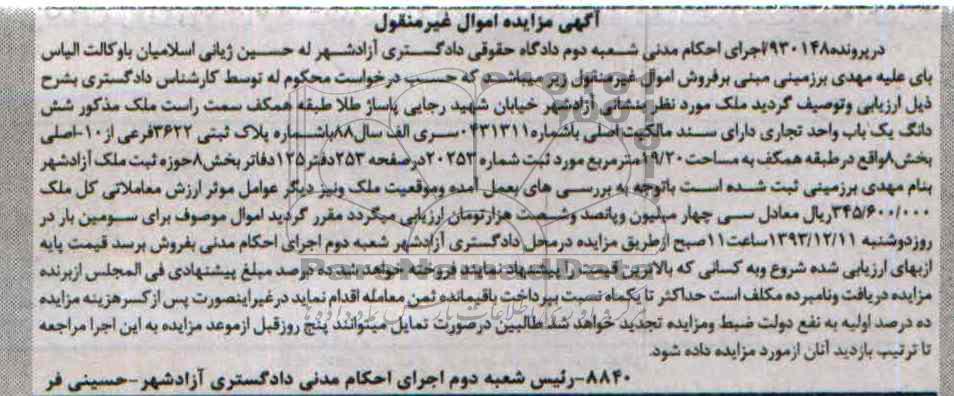 آگهی مزایده اموال غیرمنقول
درپرونده۹۳۰۱۴۸/اجرای احکام مدنی شعبه دوم دادگاه حقوقی دادگستری آزادشهر له حسین ژیانی اسلامیان باوکالت الیاس
بای علیه مهدی برزمینی مبنی برفروش اموال غیرمنقول زیر میباشد که حسب درخواست محکوم له توسط کارشناس دادگستری بشرح
ذیل ارزیابی وتوصیف گردید ملک مورد نظر بنشانی آزادشهر خیابان شهید رجایی پاساژ طلا طبقه همکف سمت راست ملک مذکور شش
دانگ یک باب واحد تجاری دارای سند مالکیت اصلی باشماره۰۴۳۱۳۱۱سری الف سال۸۸باشماره پلاک ثبتی ۳۶۲۲فرعی از۱۰-اصلی
بخش۸واقع درطبقه همکف به مساحت۱۹/۲۰مترمربع مورد ثبت شماره ۲۰۲۵۳درصفحه ۲۵۳دفتر۱۲۵دفاتر بخش۸حوزه ثبت ملک آزادشهر
بنام مهدی برزمینی ثبت شده است باتوجه به بررسی های بعمل آمده وموقعیت ملک ونیز دیگر عوامل موثر ارزش معاملاتی کل ملک
۳۴۵/۶۰۰/۰۰۰ریال معادل سی چهار میلیون وپانصد وشصت هزارتومان ارزیابی میگردد مقرر گردید اموال موصوف برای سومین بار در
روزدوشنبه ۱۳۹۳/۱۲/۱۱ساعت۱۱صبح ازطریق مزایده درمحل دادگستری آزادشهر شعبه دوم اجرای احکام مدنی بفروش برسد قیمت پایه
ازبهای ارزیابی شده شروع وبه کسانی که بالاترین قیمت را پیشنهاد نمایند فروخته خواهد شد ده درصد مبلغ پیشنهادی فی المجلس ازبرنده
مزایده دریافت ونامبرده مکلف است حداکثر تا یکماه نسبت بپرداخت باقیمانده ثمن معامله اقدام نماید درغیراینصورت پس ازکسرهزینه مزایده
ده درصد اولیه به نفع دولت ضبط ومزایده تجدید خواهد شد طالبین درصورت تمایل میتوانند پنج روزقبل ازموعد مزایده به این اجرا مراجعه
تا ترتیب بازدید آنان ازمورد مزایده داده شود.
۸۸۴۰-رئیس شعبه دوم اجرای احکام مدنی دادگستری آزادشهر-حسینی فر